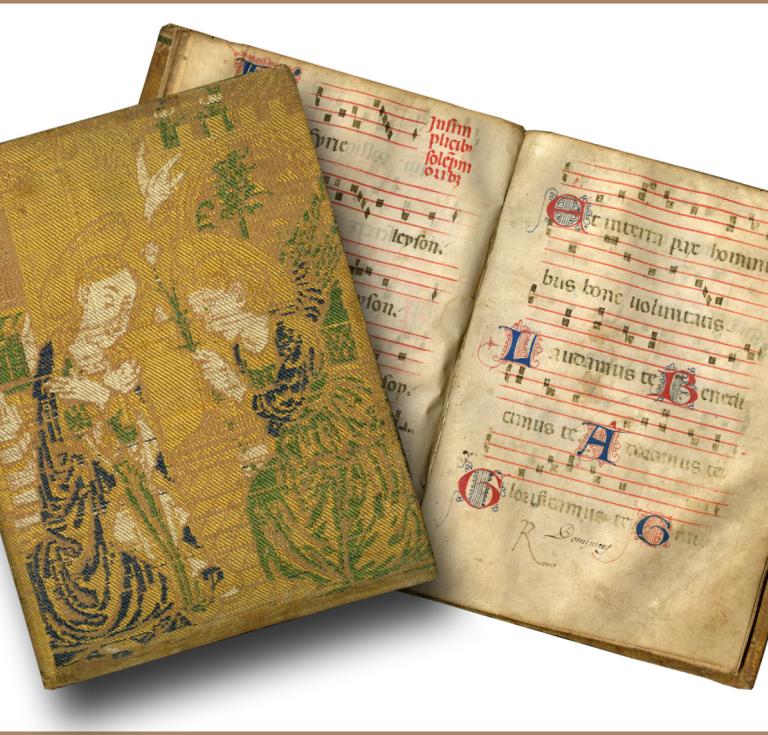 yrie
leyson.
yson.
son.
In sim
plicib;
solēpni
Et in terra pax homini
bus bone uoluntatis.
Laudamus te Benedi
cimus te Adoramus te
Glorificamus te G
Dominus